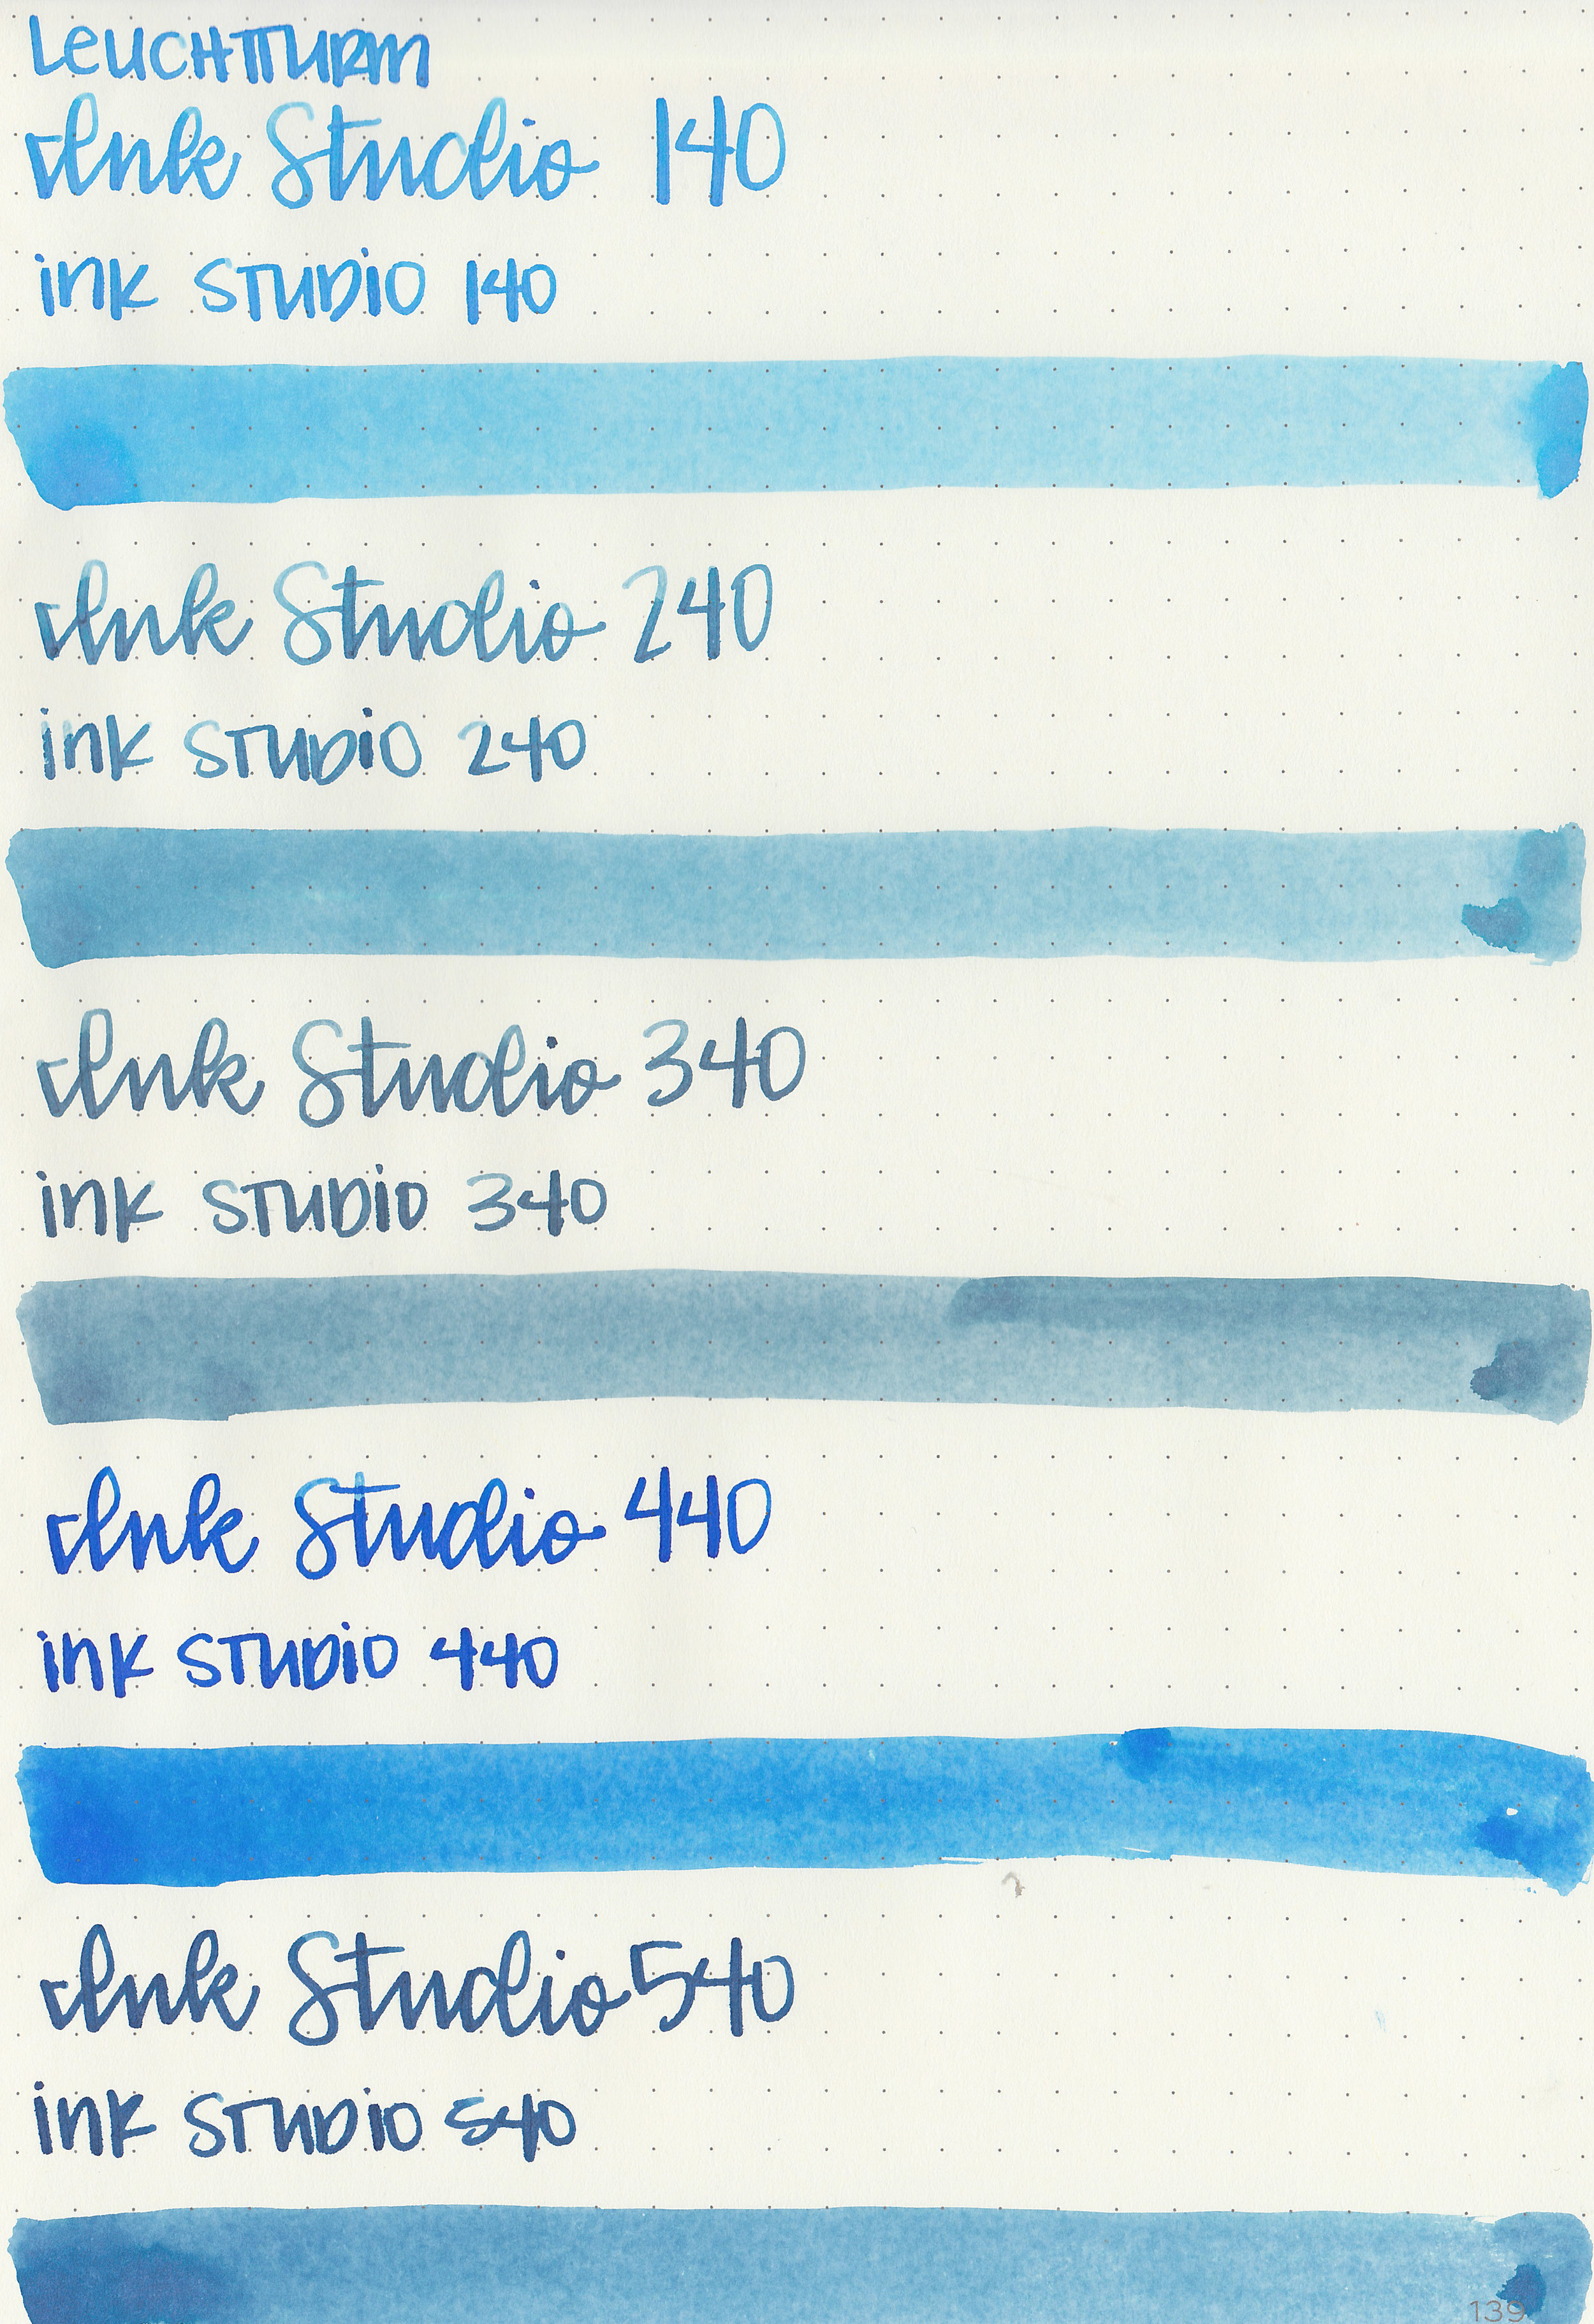 LEUCHTTURM
Ink Studio 140
ink STUDiO 140
Ink Studio 240
ink STUDiO 240
Ink Studio 340
ink STUDiO 340
Ink Studio 440
ink STUDiO 440
Ink Studio 540
ink STUDiO 540
139